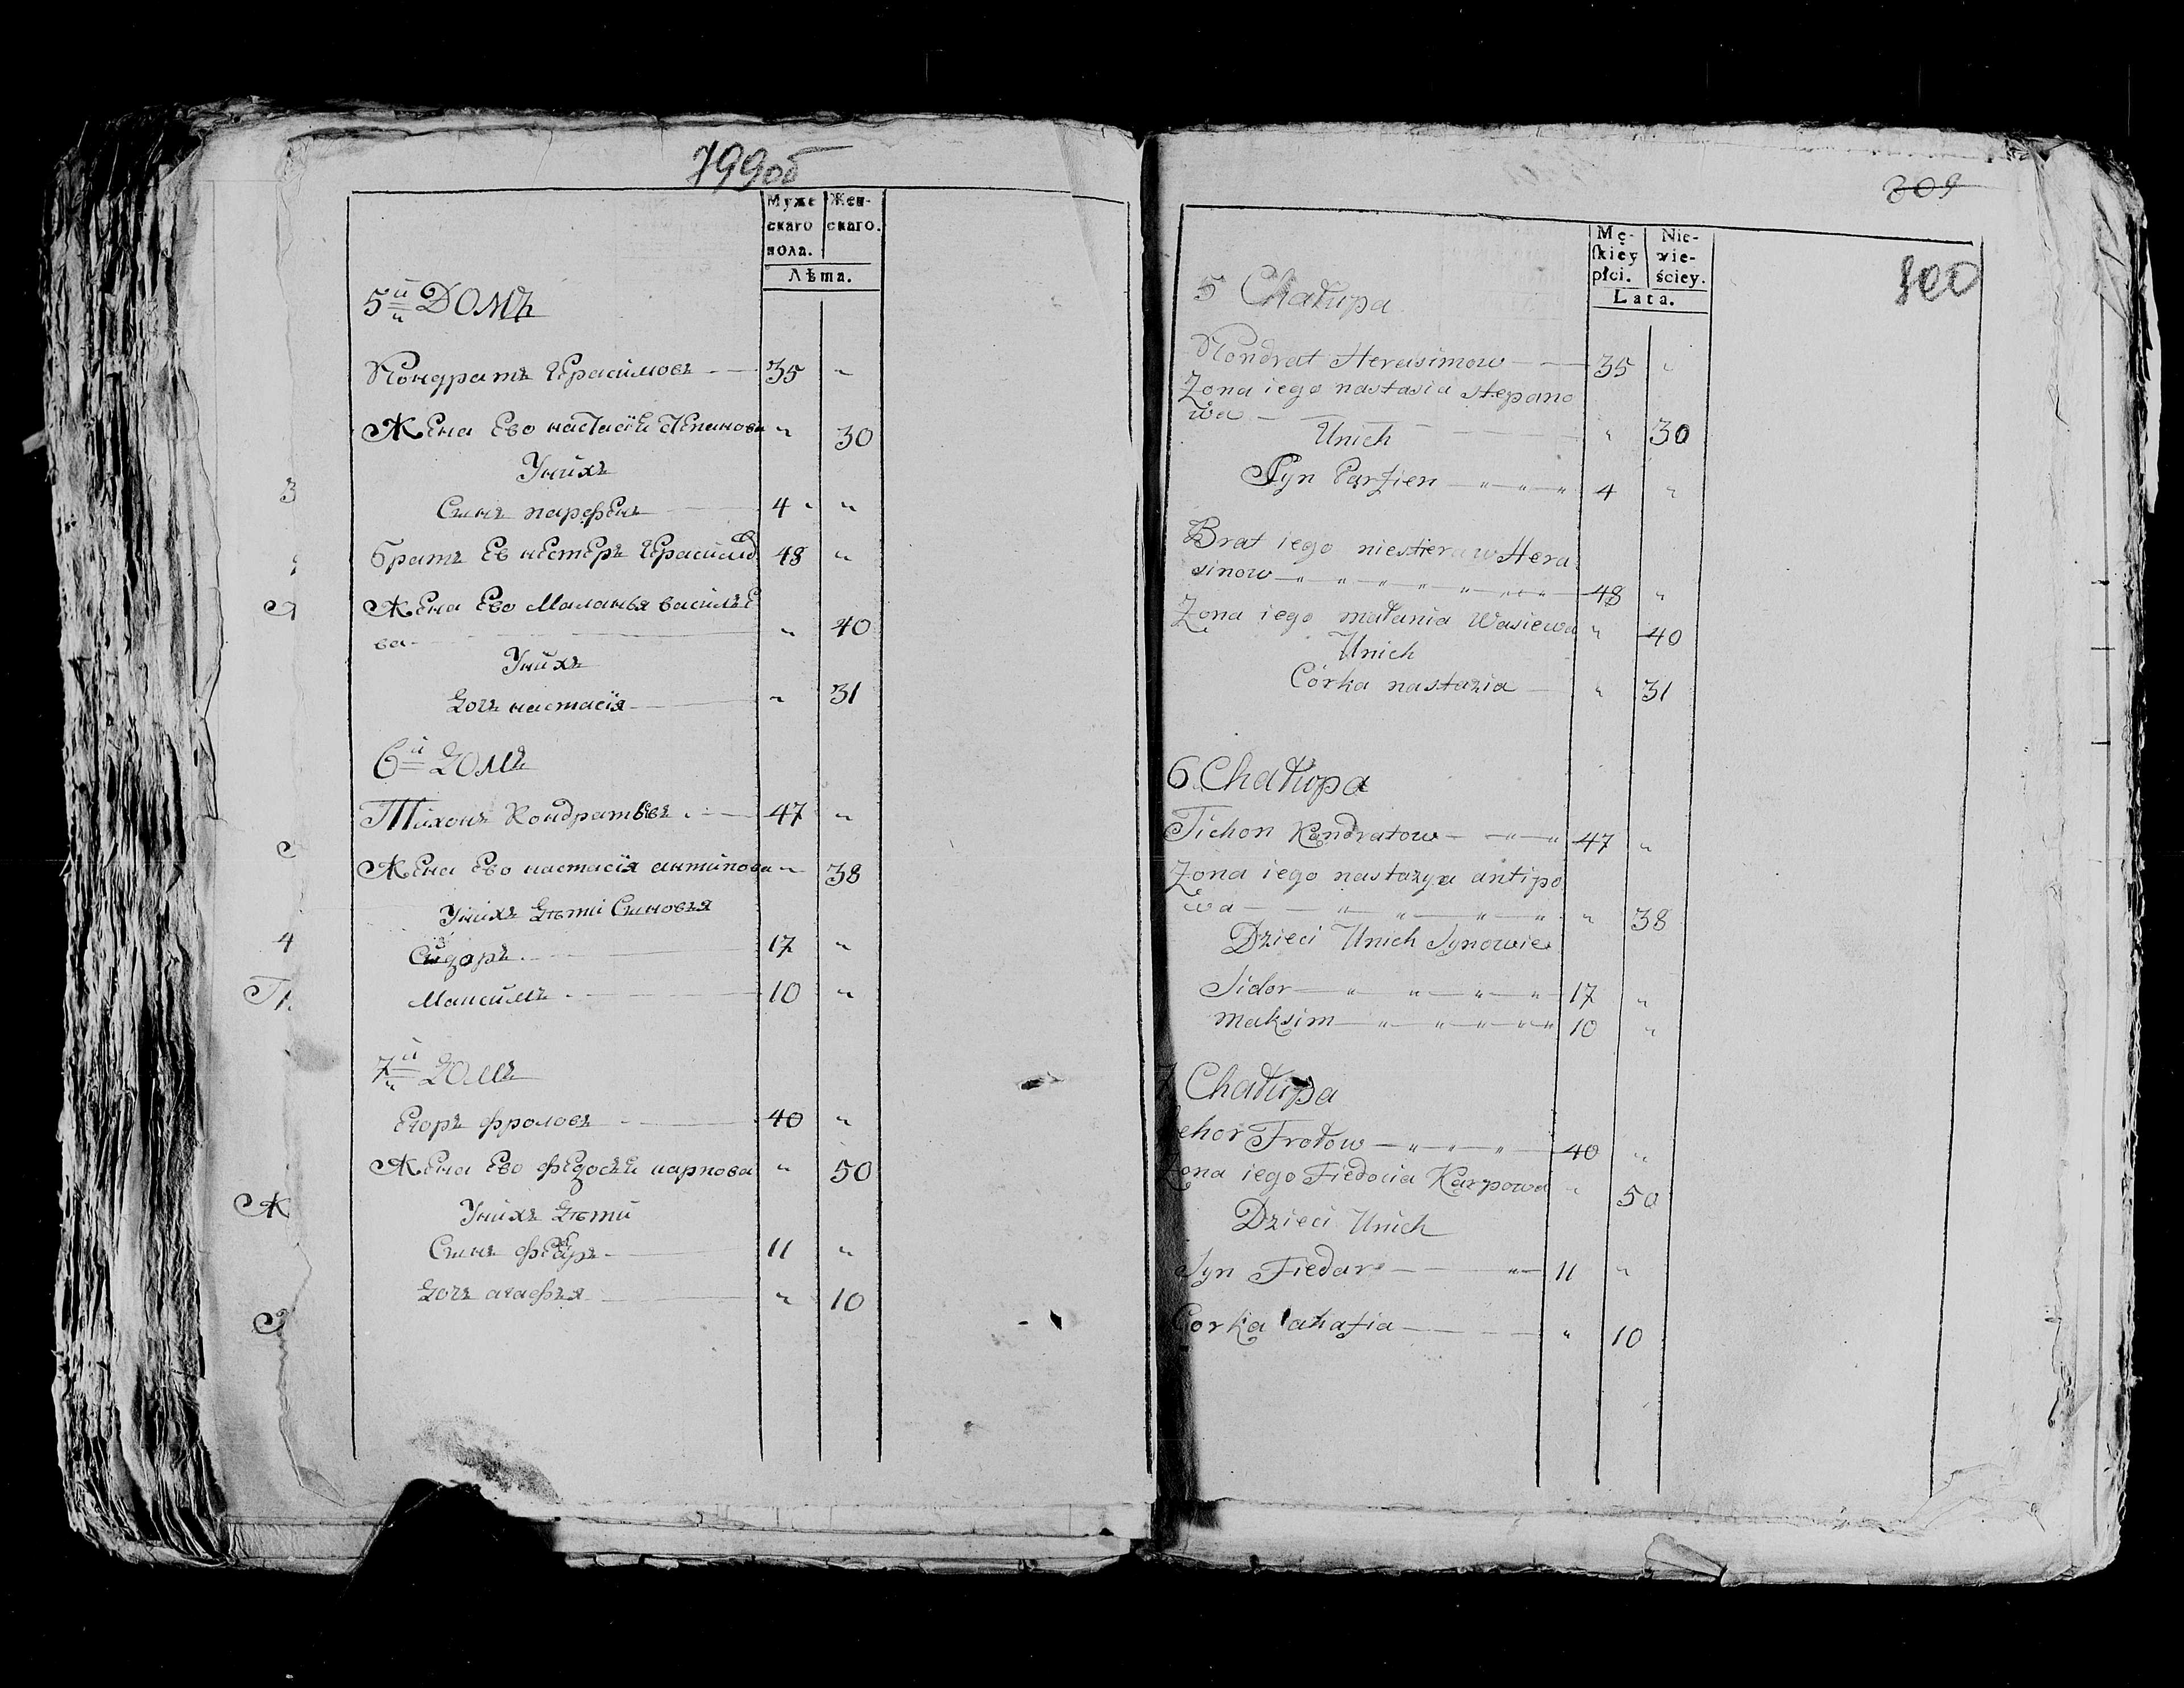 799об
Муже Жен-
скаго скаго.
пола.
Лѣта.
5й Домъ
Кондратъ Герасимовъ 35 "
Жена Ево настасiя Степанова " 30
Унихъ
Сынъ парфенъ 4 "
братъ Ев нестеръ Герасимов 48 "
Жена Ево Маланья василье
ва " 40
Унихъ
Дочь настасiя " 31
6й Домъ
Тихонъ Кондратьевъ 47 "
Жена Ево настасiя антипова " 38
Унихъ Дѣти Сыновья
Сидоръ 17 "
Максимъ 10 "
7й Домъ
Егоръ фроловъ 40 "
Жена Ево федосья карпова " 50
Унихъ Дѣти
Сынъ 11 "
Дочь агафья " 10
3
4
Ж
309
800
Mę- Nie-
ſkiey wie-
płci. ściey.
Lata.
5 Chałupa
Kondrat Herasimow 35 "
Zona iego nastasia stepano
wa
Unich " 30
Syn Parfien 4 "
Brat iego Hera
simow 48 "
Zona iego małania Wasiewa " 40
Unich
Córka nastazia " 31
6 Chałupa
Tichon Kondratow 47 "
Zona iego nastazya antipo
wa " 38
Dzieci Unich Synowie
Sidor 17 "
maksim 10 "
7 Chałupa
ehor Frołow 40 "
Zona iego Fiedocia Karpowa " 50
Dzieci Unich
Syn Fiedar 11 "
Corka ahafia " 10